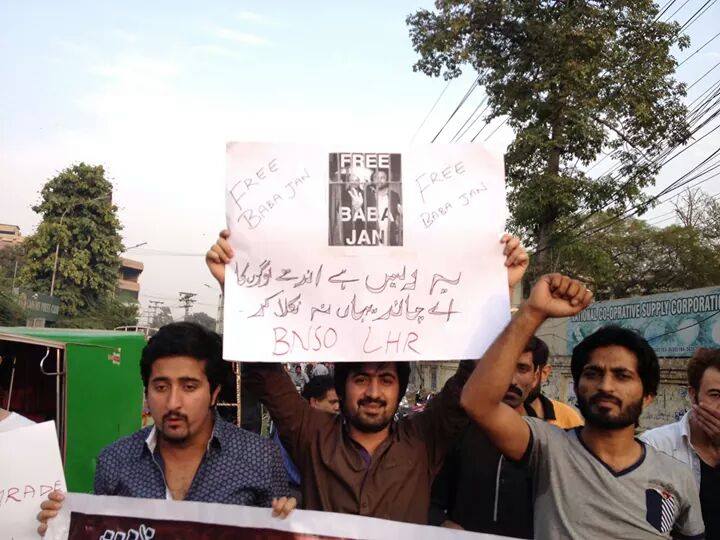 FREE
BABA JAN
FREE
BABA
JAN
FREE
BABA JAN
یہ دیس ہے اندھے لوگوں کا
اے چاند یہاں نہ نکلا کر
BNSO LHR
NATIONAL CO-OPRATIVE SUPPLY CORPORATION
RADE